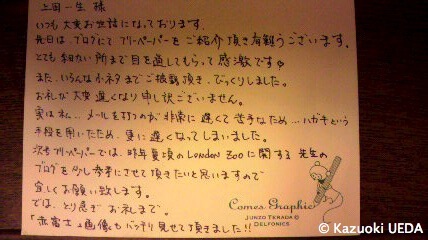 上田一生 様
いつも大変お世話になっております。
先日は、ブログにて フリーペーパーを ご紹介頂き有難うございます。
とても細かい所まで目を通してもらって感激です
また、いろんな小ネタまでご披露頂き、びっくりしました。
お礼が大変遅くなり申し訳ございません。
実は私… メールを打つのが非常に遅くて苦手なため… ハガキという
手段を用いたため、更に遅くなってしまいました。
次号フリーペーパーでは、昨年夏頃のLondon Zooに関する 先生の
ブログを少し参考にさせて頂きたいと思いますので
宜しくお願い致します。
では、とり急ぎ お礼まで。
「赤富士」画像もバッチリ見せて頂きました!!
Comes Graphic
JUNZO TERADA ©
DELFONICS
© Kazuoki UEDA